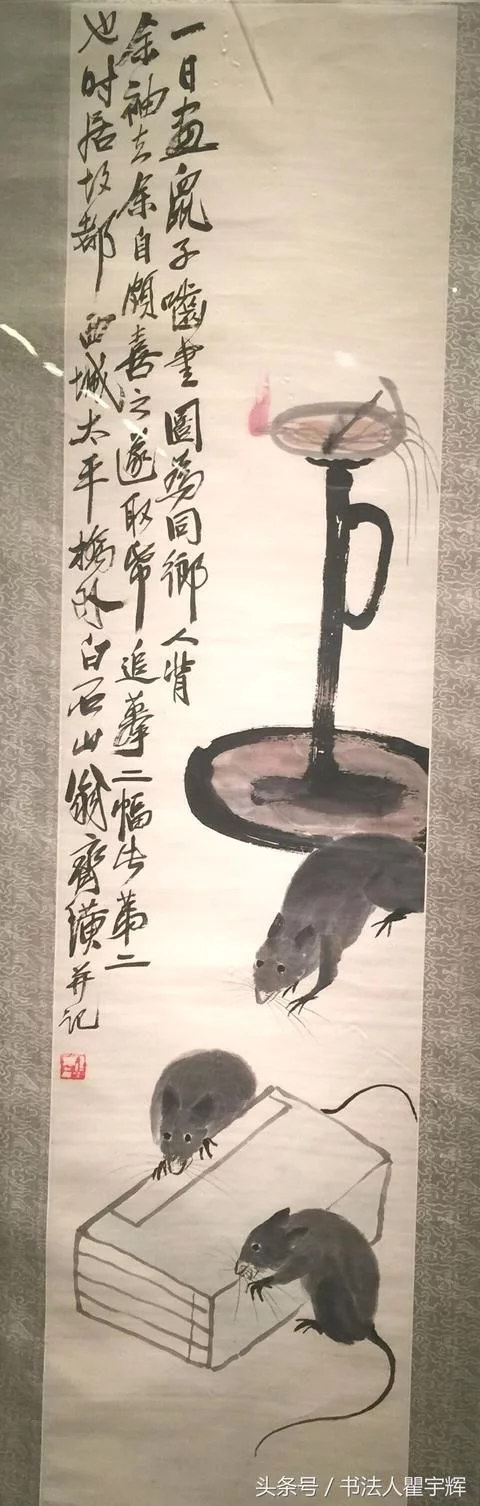 一日画鼠子啮书图为同乡人背
余袖去余自颇喜之遂取纸追摹二幅此第二
也时居故都西城太平桥外白石山翁齐璜并记
头条号 / 书法人瞿宇辉